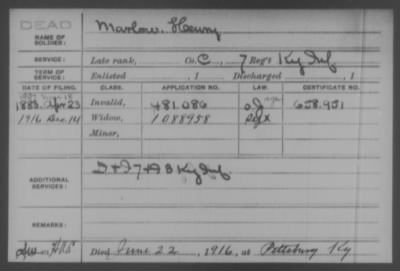 DEAD
NAME OF SOLDIER:
Marlow, Henry
SERVICE:
Late rank, Co. C, 7 Reg't Ky Inf
TERM OF SERVICE:
Enlisted , 1 Discharged , 1
DATE OF FILING. CLASS. APPLICATION NO. LAW. CERTIFICATE NO.
1883 Apr 23 Invalid, 481.086 658.951
1916 Dec. 14 Widow, 1088958
Minor,
ADDITIONAL SERVICES:
D + F 7 + A 3 Ky Inf.
REMARKS:
Died June 22, 1916, at Pittsburg Ky